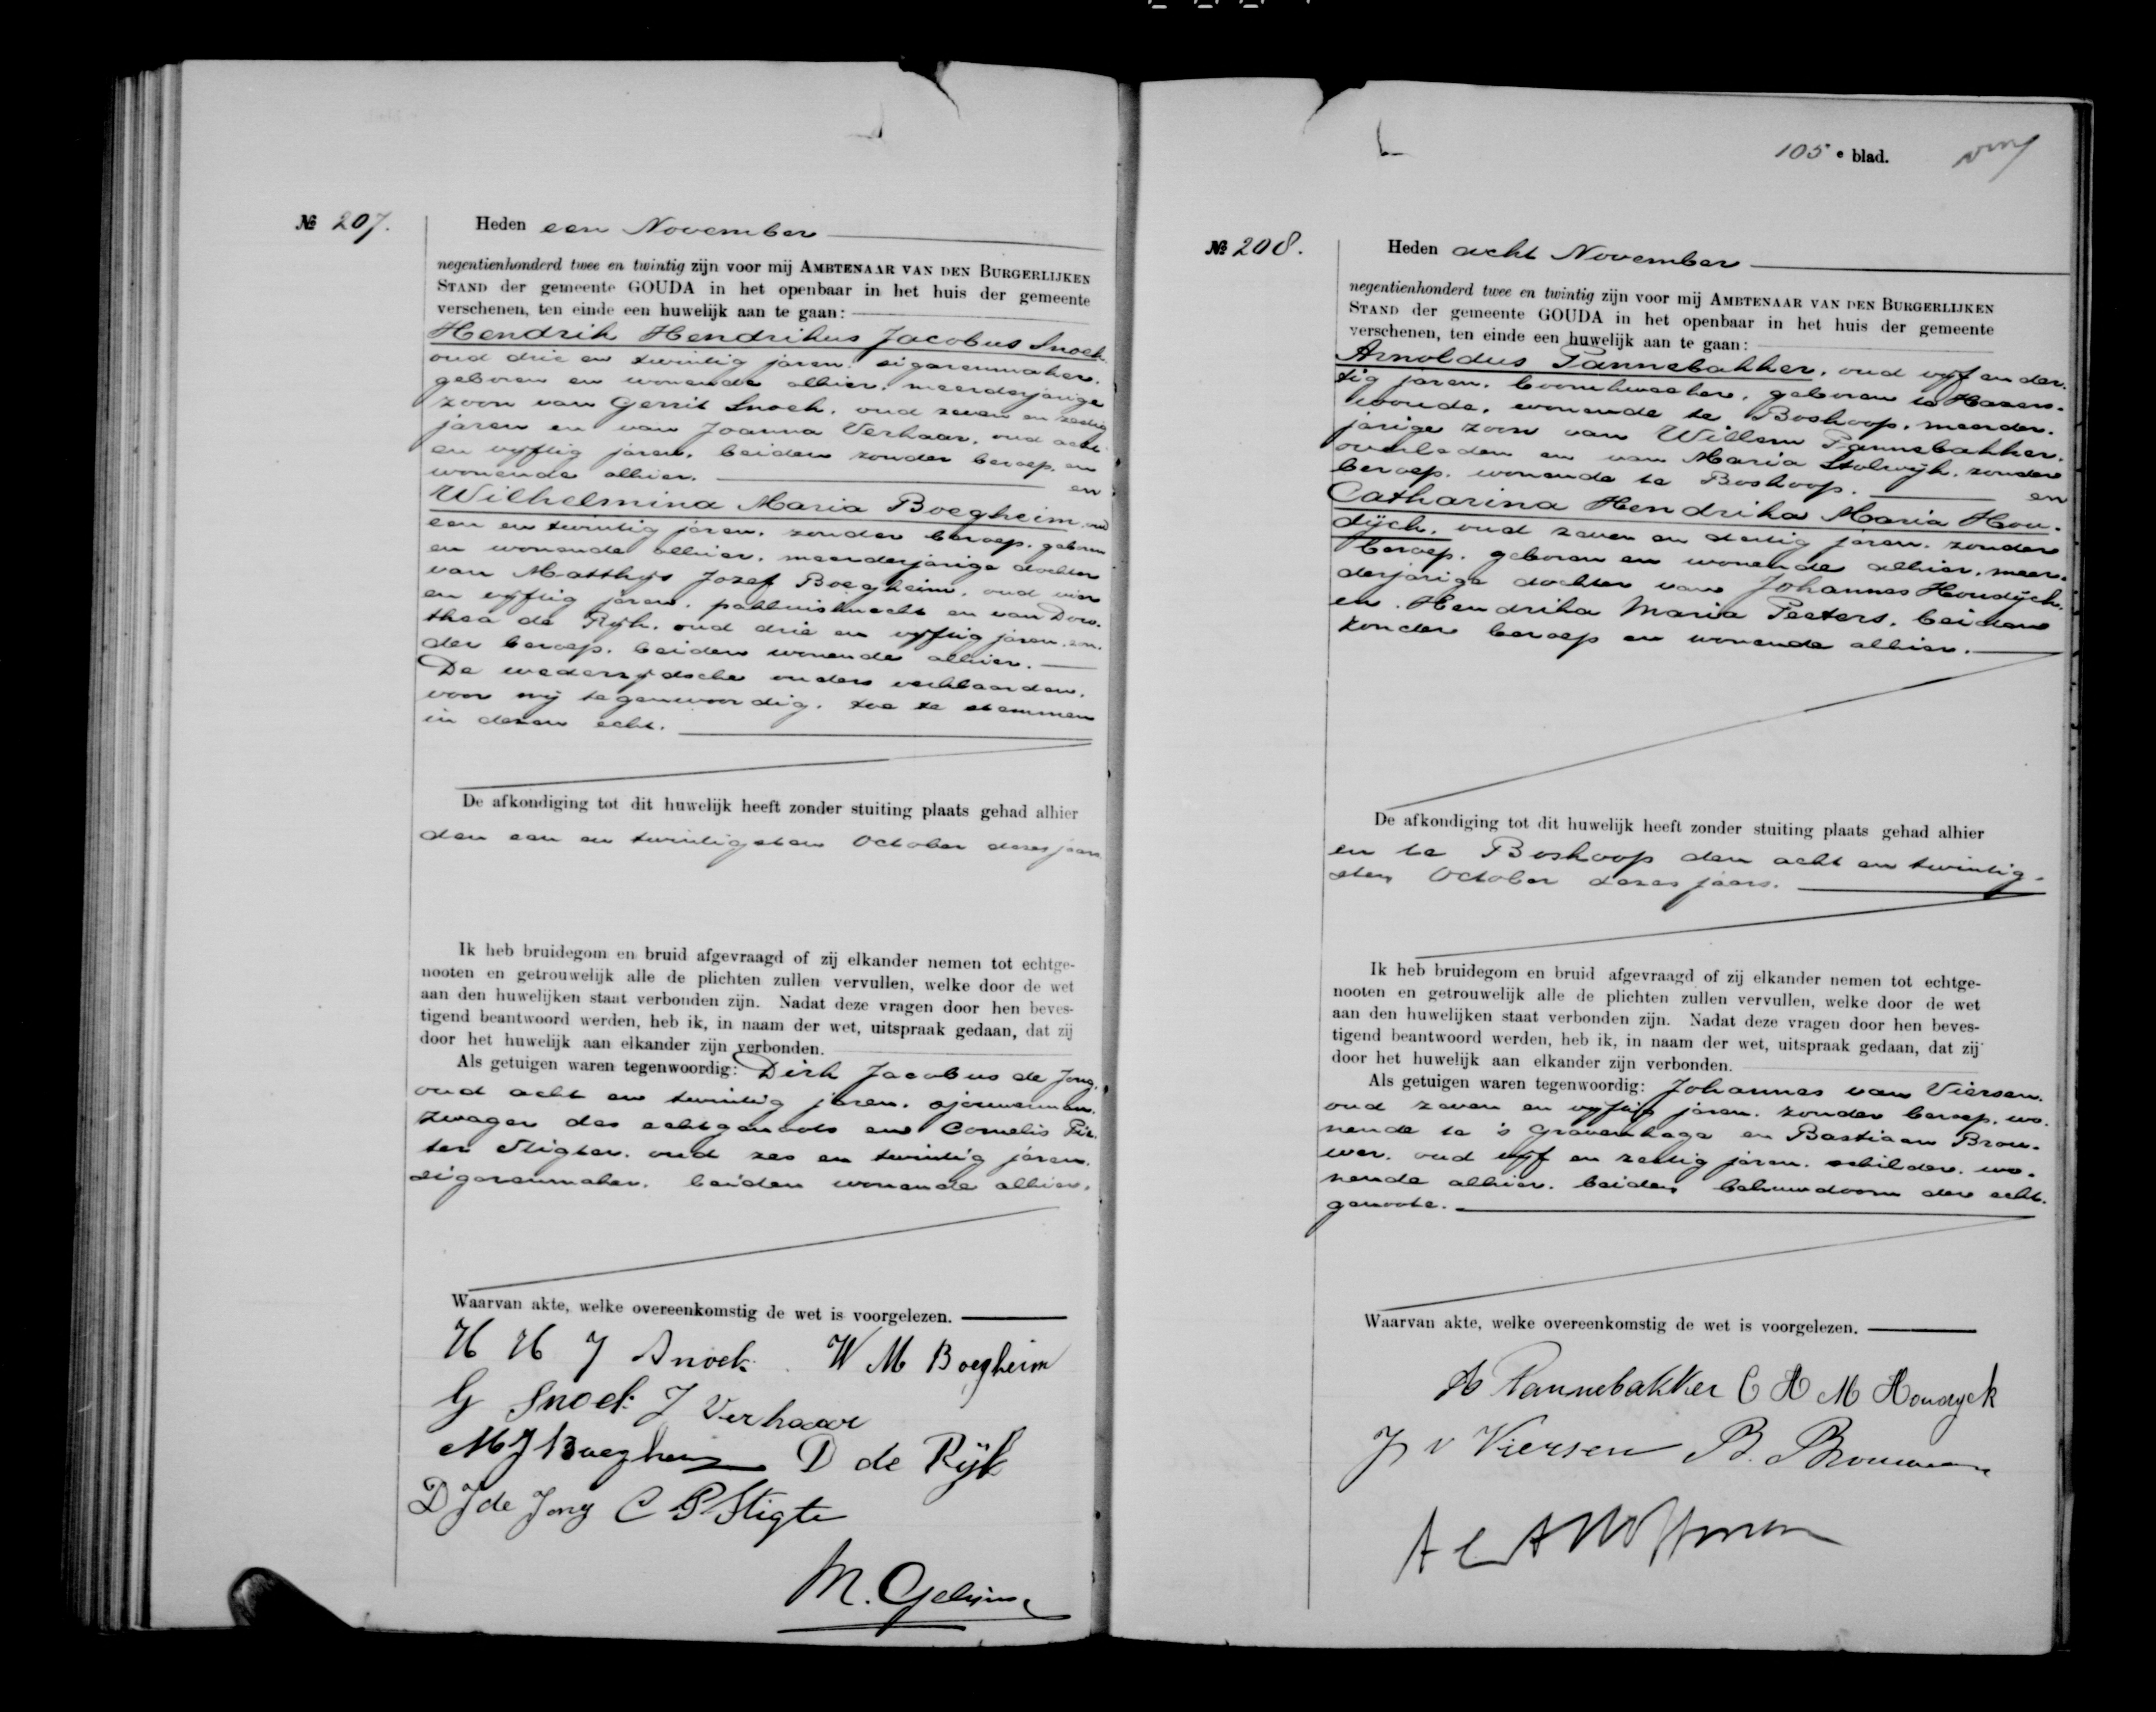 № 207.
Heden een November
negentienhonderd twee en twintig zijn voor mij AMBTENAAR VAN DEN BURGERLIJKEN
STAND der gemeente GOUDA in het openbaar in het huis der gemeente
verschenen, ten einde een huwelijk aan te gaan:
Hendrik Hendrikus Jacobus Snoek.
oud drie en twintig jaren. sigarenmaker.
geboren en wonende alhier. meerderjarige
zoon van Gerrit Snoek. oud zeven en zestig
jaren en van Joanna Verhaar. oud acht
en vijftig jaren. beiden zonder beroep. en
wonende alhier. en
Wilhelmina Maria Boegheim. oud
een en twintig jaren. zonder beroep. geboren
en wonende alhier. meerderjarige dochter
van Matthijs Jozef Boegheim. oud vier
en vijftig jaren. pakhuisknecht en van Doro-
thea de Rijk. oud drie en vijftig jaren. zon-
der beroep. beiden wonende alhier.
De wederzijdsche ouders verklaarden.
voor mij tegenwoordig. toe te stemmen
in dezen echt.
De afkondiging tot dit huwelijk heeft zonder stuiting plaats gehad alhier
den een en twintigsten October dezes jaars
Ik heb bruidegom en bruid afgevraagd of zij elkander nemen tot echtge-
nooten en getrouwelijk alle de plichten zullen vervullen, welke door de wet
aan den huwelijken staat verbonden zijn. Nadat deze vragen door hen beves-
tigend beantwoord werden, heb ik, in naam der wet, uitspraak gedaan, dat zij
door het huwelijk aan elkander zijn verbonden.
Als getuigen waren tegenwoordig: Dirk Jacobus de Jong.
oud acht en twintig jaren. sjouwerman.
zwager des echtgenoots en Cornelis Pie-
ter Stigter. oud zes en twintig jaren.
sigarenmaker. beiden wonende alhier.
Waarvan akte, welke overeenkomstig de wet is voorgelezen.
H H J Snoek. W M Boegheim
G Snoek J Verhaar
M J Boegheim D de Rijk
D J de Jong C P Stigter
105e blad.
№ 208.
Heden acht November
negentienhonderd twee en twintig zijn voor mij AMBTENAAR VAN DEN BURGERLIJKEN
STAND der gemeente GOUDA in het openbaar in het huis der gemeente
verschenen, ten einde een huwelijk aan te gaan:
Arnoldus Pannebakker. oud vijf en der-
tig jaren. boomkweeker. geboren te Hazers-
woude. wonende te Boskoop. meerder-
jarige zoon van Willem Pannebakker.
overleden en van Maria Stolwijk. zonder
beroep. wonende te Boskoop. en
Catharina Hendrika Maria Hou-
dijck. oud zeven en dertig jaren. zonder
beroep. geboren en wonende alhier. meer-
derjarige dochter van Johannes Houdijck.
en Hendrika Maria Peeters. beiden
zonder beroep en wonende alhier.
De afkondiging tot dit huwelijk heeft zonder stuiting plaats gehad alhier
en te Boskoop den acht en twintig-
sten October dezes jaars.
Ik heb bruidegom en bruid afgevraagd of zij elkander nemen tot echtge-
nooten en getrouwelijk alle de plichten zullen vervullen, welke door de wet
aan den huwelijken staat verbonden zijn. Nadat deze vragen door hen beves-
tigend beantwoord werden, heb ik, in naam der wet, uitspraak gedaan, dat zij
door het huwelijk aan elkander zijn verbonden.
Als getuigen waren tegenwoordig: Johannes van Viersen.
oud zeven en vijftig jaren. zonder beroep. wo-
nende te 's Gravenhage en Bastiaan Brou-
wer. oud vijf en zestig jaren. schilder. wo-
nende alhier. beiden behuwdoom der echt-
genoote.
Waarvan akte, welke overeenkomstig de wet is voorgelezen.
A Pannebakker C H M Houdyck
J v Viersen B. Brouwer